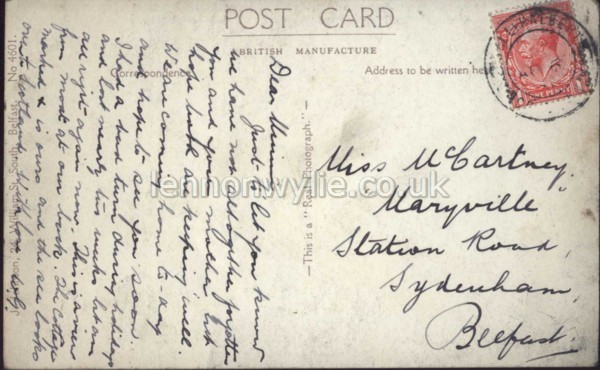 POST CARD
BRITISH MANUFACTURE
Correspondence
Address to be written here
Dear Minnie
Just to let you know
we have not altogether forgotten
you and your mother but
hope both are keeping well.
We are coming home to-day
and hope to see you soon.
I had a bad turn during holidays
and last nearly two weeks but am
all right again now. This is a view
from most at our back. The cottage
marked x is ours and the sea looks
Miss McCartney,
"Maryville"
Station Road,
Sydenham,
Belfast.
—This is a "Real Photograph."—
William St. South, Belfast. No 4601.
ONE PENNY
lennonwylie.co.uk